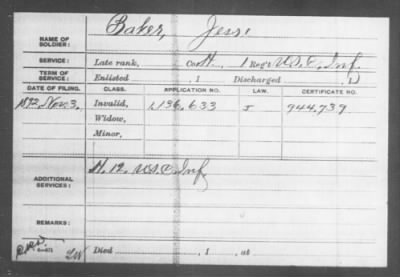 NAME OF SOLDIER: Baker, Jess
SERVICE: Late rank, Co. H, 1 Reg't U.S.C. Inf.
TERM OF SERVICE: Enlisted , 1 Discharged , 1
DATE OF FILING. CLASS. APPLICATION NO. LAW. CERTIFICATE NO.
1892, Nov. 3, Invalid, 1,136,633 944,739
Widow,
Minor,
ADDITIONAL SERVICES: H. 12. U.S.C. Inf.
REMARKS:
Died , 1 , at